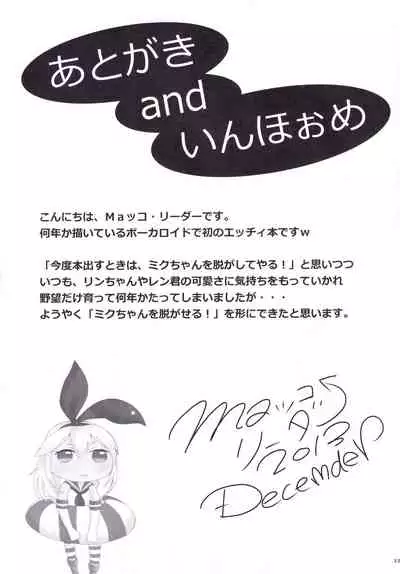 あとがき
and
いんほぉめ
こんにちは、Maッコ・リーダーです。
何年か描いているボーカロイドで初のエッチィ本ですw
「今度本出すときは、ミクちゃんを脱がしてやる！」と思いつつ
いつも、リンちゃんやレン君の可愛さに気持ちをもっていかれ
野望だけ育って何年かたってしまいましたが・・・
ようやく「ミクちゃんを脱がせる！」を形にできたと思います。
Maッコ
リーダー
2013
December